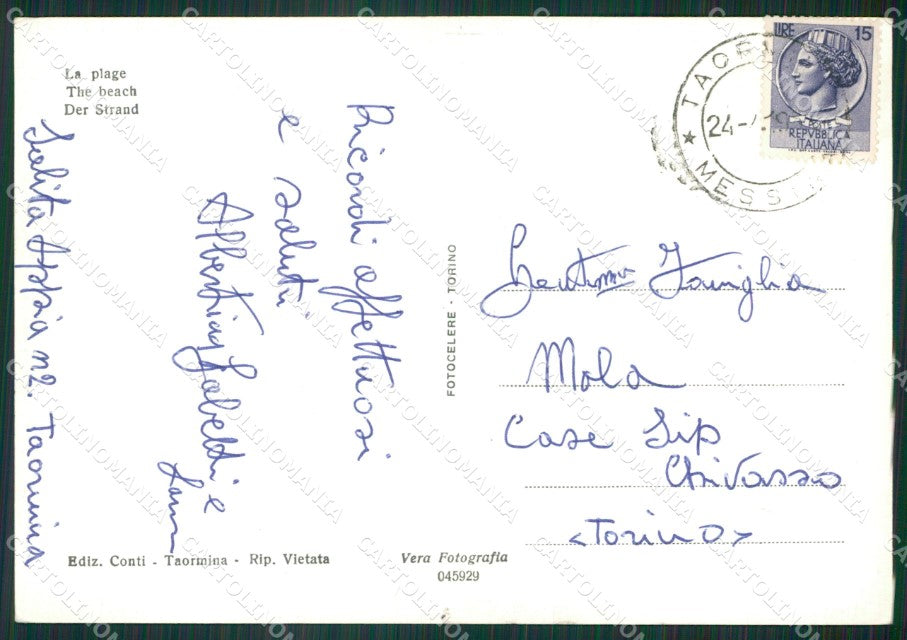 La plage
The beach
Der Strand
Ricordi affettuosi
e saluti
Salita Appia n2. Taormina
FOTOCELERE · TORINO
Ediz. Conti - Taormina - Rip. Vietata
Vera Fotografia
045929
LIRE 15
POSTE
REPVBBLICA
ITALIANA
TAOR
24-
MESSI
Gentma Famiglia
Mola
Case Sip
Chivasso
<Torino>
CARTOLINOMANIA